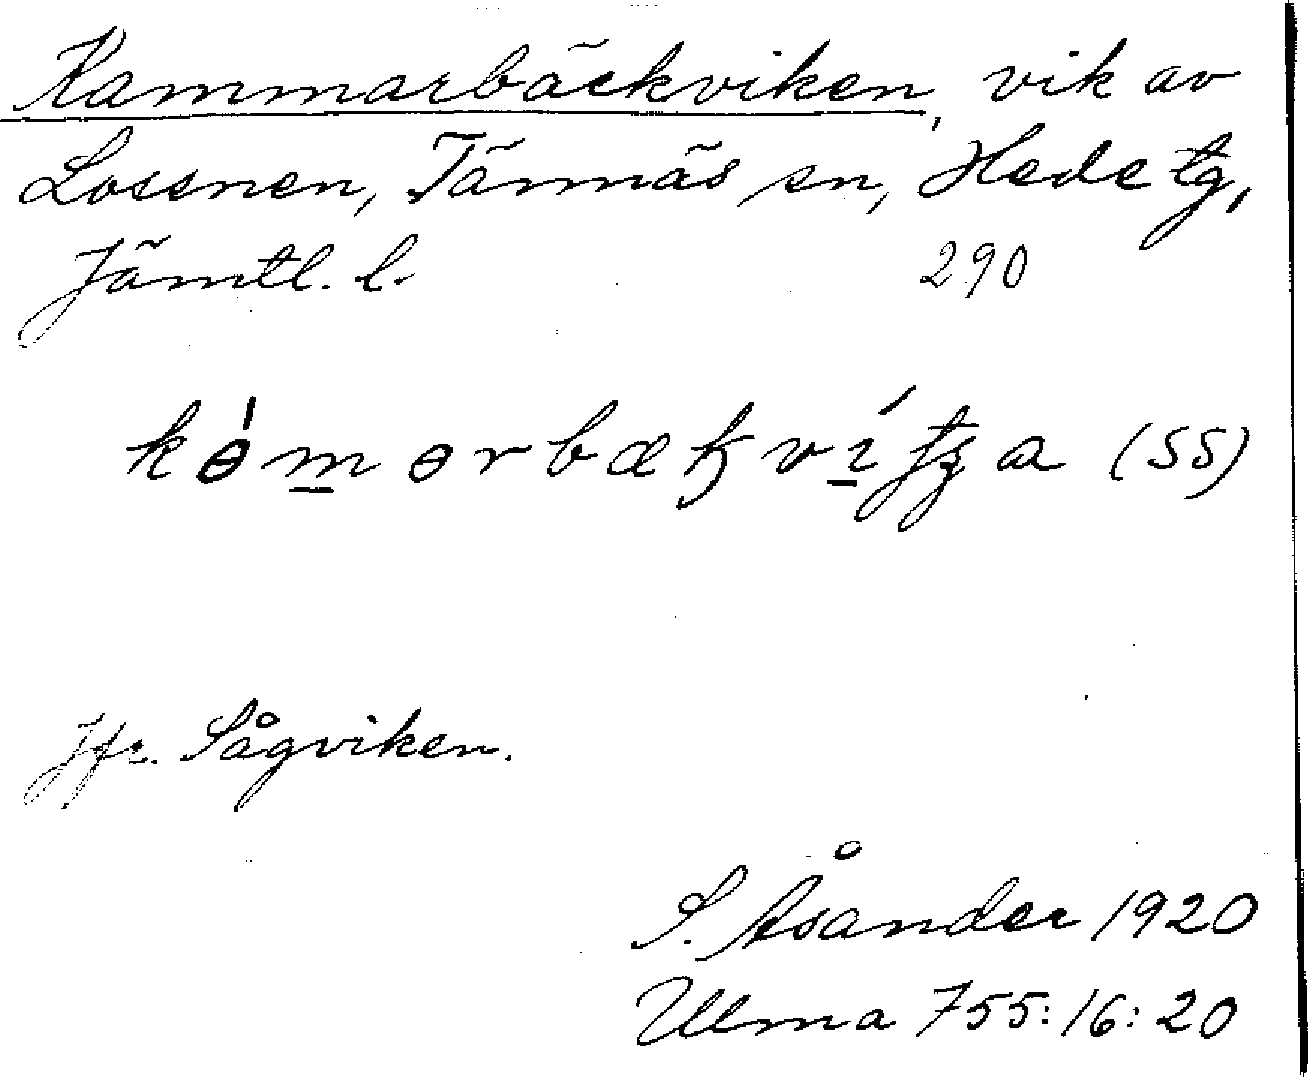 Kammarbäckviken, vik av
Lossnen, Tännäs sn, Hede tg,
Jämtl. l. 290
kɵ́m̲ɵrbæꞣvı̲́ʈʒa (SS)
Jfr. Sågviken.
S. Åsander 1920
Ulma 755:16:20